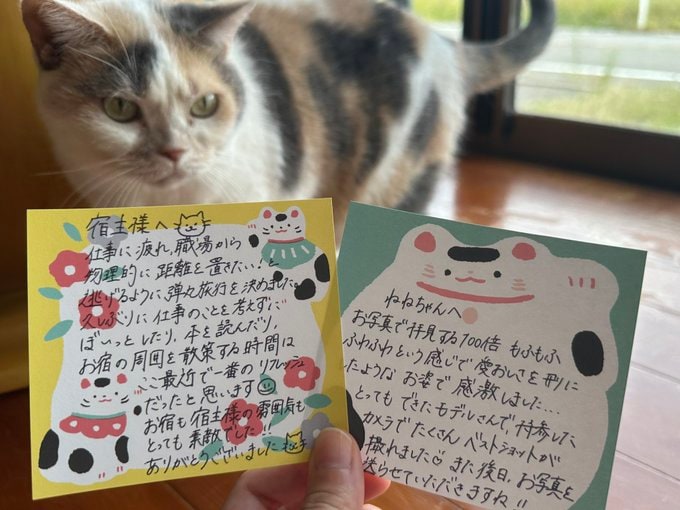 宿主様へ
仕事に疲れ、職場から
物理的に距離を置きたい！と
逃げるように弾丸旅行を決めました。
久しぶりに仕事のことを考えずに
ぼいっとしたり、本を読んだり、
お宿の周囲を散策する時間は
ここ最近で一番のリフレッシュ
だったと思います
お宿も宿主様の雰囲気も
とても素敵でした!!
ありがとうございました
ねねちゃんへ
お写真で拝見する100倍 もふもふ
ふわふわという感じで愛おしさを形に
したような お姿で 感激しました…
とっても できたモデルさんで 持参した
カメラで たくさん ベストショットが
撮れました♡ また後日、お写真を
送らせていただきますね!!